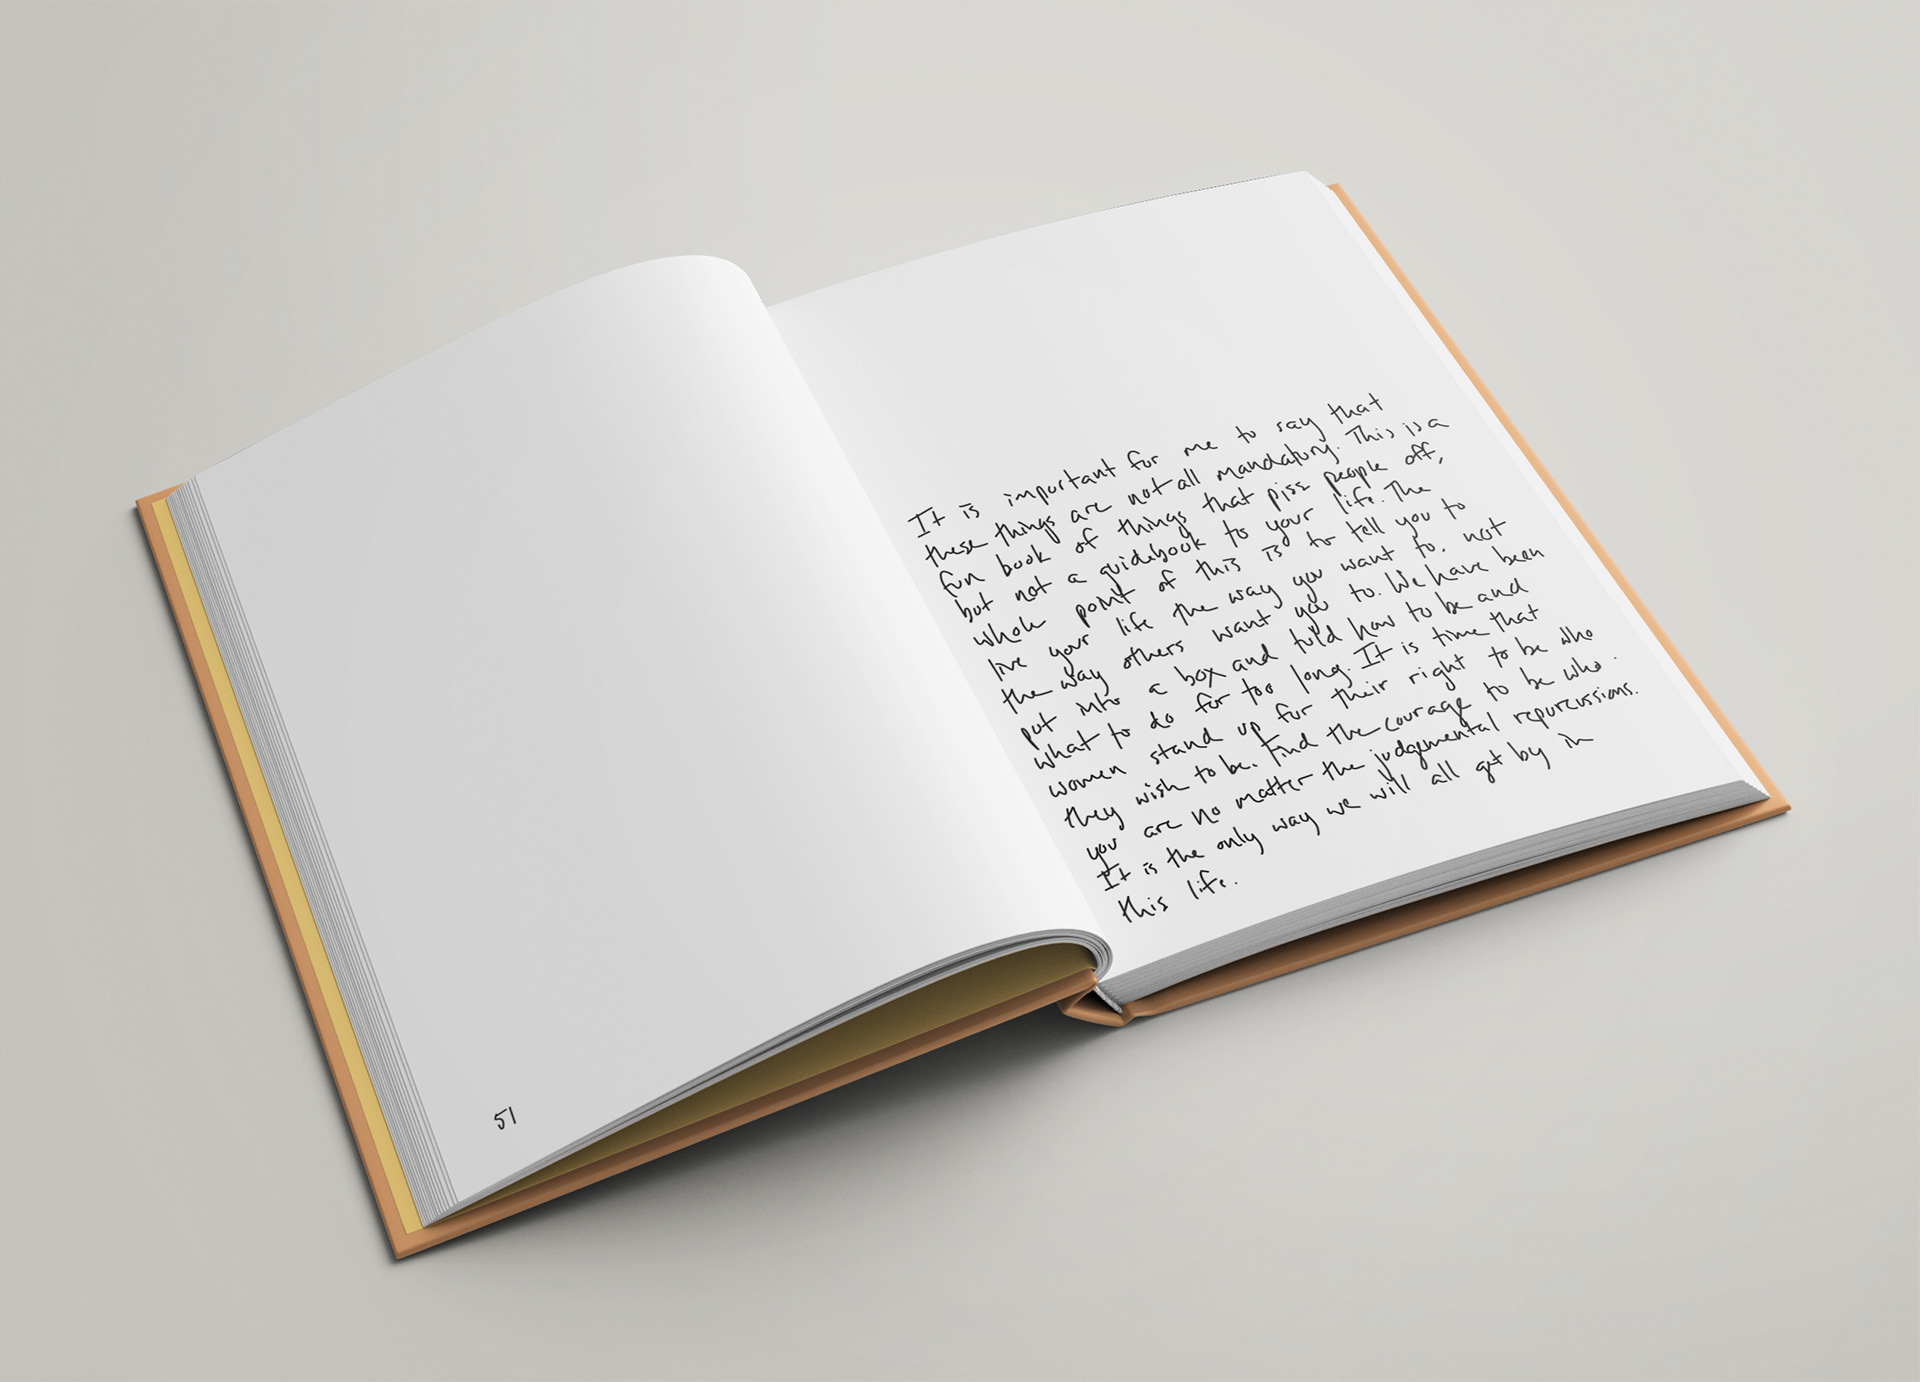 51
It is important for me to say that
these things are not all mandatory. This is a
fun book of things that piss people off,
but not a guidebook to your life. The
whole point of this is to tell you to
live your life the way you want to. not
the way others want you to. We have been
put into a box and told how to be and
what to do for too long. It is time that
women stand up for their right to be who
they wish to be. Find the courage to be who.
you are no matter the judgemental repurcussions.
It is the only way we will all get by in
this life.